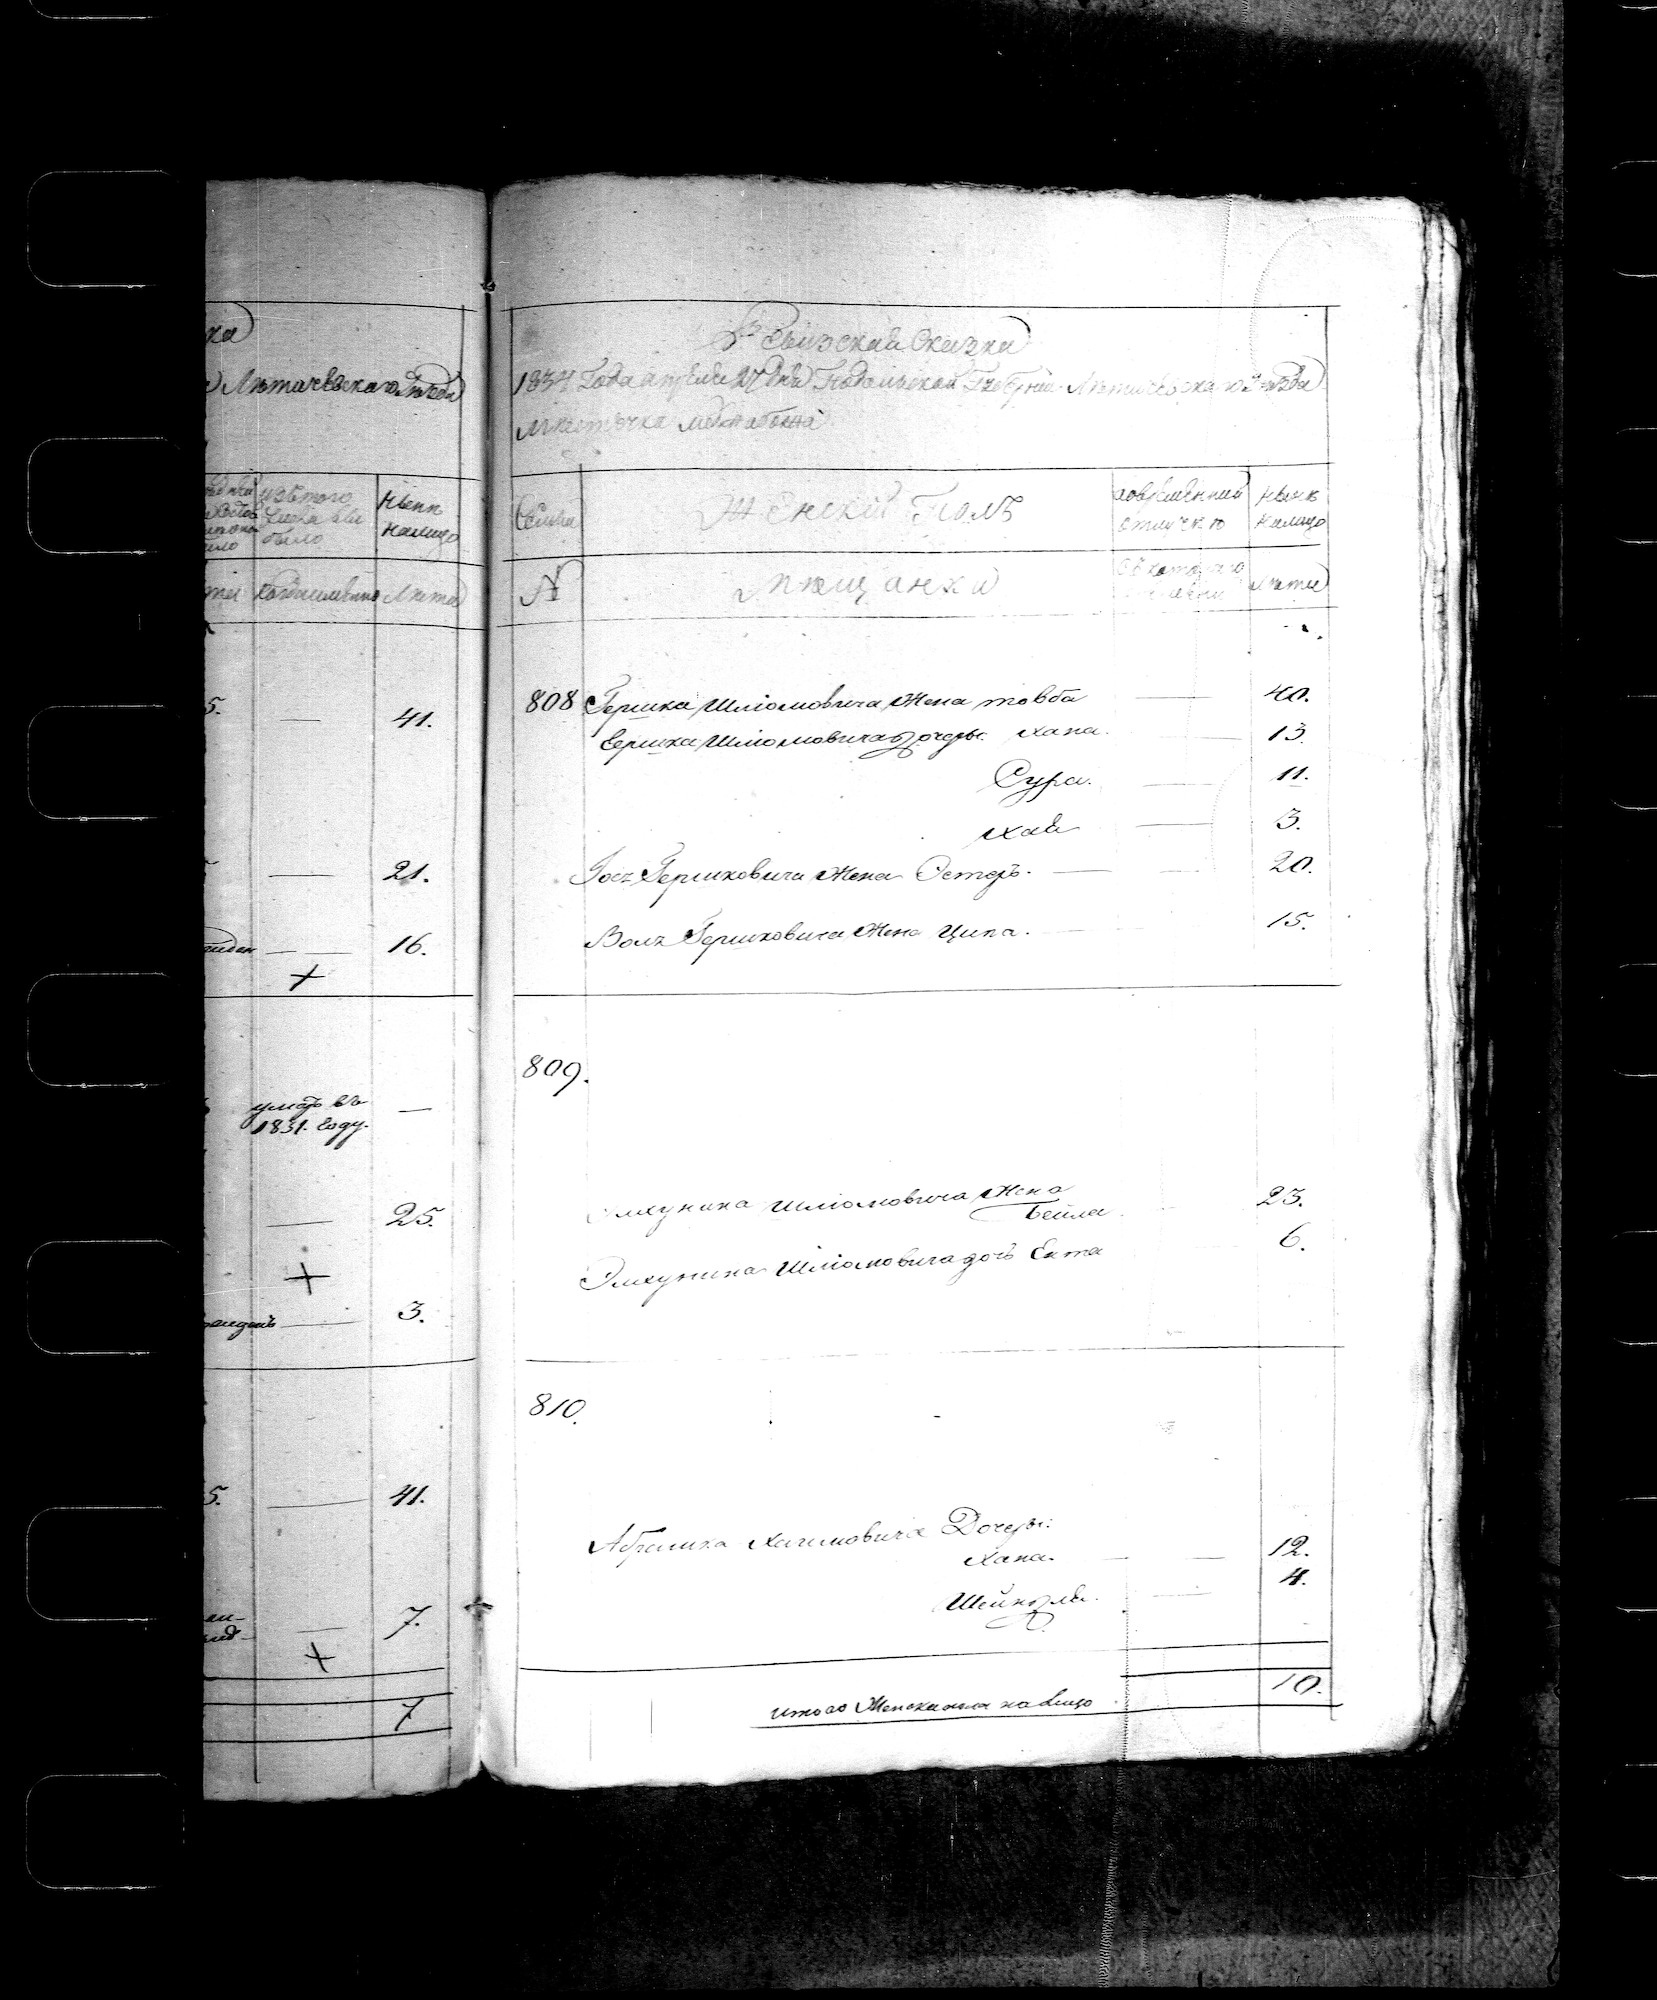 ка
Лѣтичевскаго уѣзда
изъ того
числа вы
было
Нынѣ
налицо
Лѣта
5.
—
41.
—
21.
—
16.
+
умеръ въ
1831. году.
—
—
25.
+
—
3.
5.
—
41.
—
7.
+
7
Ревизская Сказка
1834 Года апреля 27 дня Подольской Губерніи Лѣтичевскаго уѣзда
мѣстечка Меджибожа
Семьи
Женскій Полъ
во временной
отлучкѣ
Нынѣ
налицо
№
мѣщанки
Съ котораго
времени
Лѣта
808 Гершка Шліомовича Жена товба — 40.
Гершка Шліомовича дочеры: хана. — 13.
Сура. — 11.
хая — 3.
Іось Гершковича Жена Естеръ. — 20.
Волъ Гершковича Жена Ципа. — 15.
809.
Элхунина Шліомовича Жена
Бейла 23.
Элхунина Шліомовича дочь Ента 6.
810.
Абрамка хаимовича Дочеры:
хана. — 12.
Шейндля. — 4.
итого Женска пола на лицо 10.